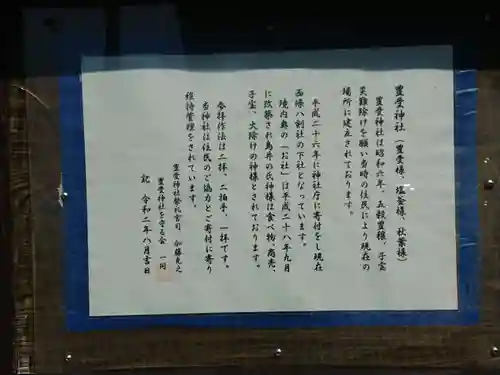 豊受神社(豊受様、塩釜様、秋葉様)
豊受神社は昭和六年、五穀豊穣、子宝
災難除けを願い当時の住民により現在の
場所に建立されております。
平成二十六年に神社庁に寄付をし現在
西條八剣社の下社となっています。
境内奥の「お社」は平成二十八年九月
に改築され鳥井の氏神様は食べ物、商売、
子宝、火除けの神様とされております。
参拝作法は二拝、二拍手、一拝です。
当神社は住民のご協力とご寄付に寄り
維持管理をされています。
豊受神社祭礼宮司 加藤克之
豊受神社を守る会 一同
記 令和二年八月吉日